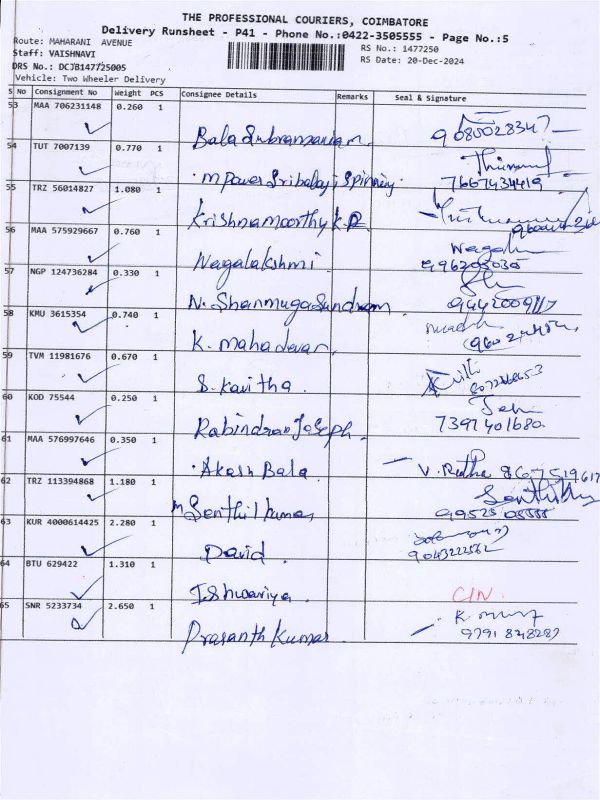 THE PROFESSIONAL COURIERS, COIMBATORE
Delivery Runsheet - P41 - Phone No.:0422-3505555 - Page No.:5
Route: MAHARANI AVENUE
RS No.: 1477250
Staff: VAISHNAVI
RS Date: 20-Dec-2024
DRS No.: DCJB147725005
Vehicle: Two Wheeler Delivery
S No Consignment No Weight PCS Consignee Details Remarks Seal & Signature
53 MAA 706231148 0.260 1
Balasubramaniam. 9085028347
54 TUT 7007139 0.770 1
mpower Sribalaji Spinning. 7667434419
55 TRZ 56014827 1.080 1
Krishnamoorthy K.R
56 MAA 575929667 0.760 1
Nagalakshmi
57 NGP 124736284 0.330 1
N. Shanmugasundram. 9442009117
58 KMU 3615354 0.740 1
K. mahadevan.
59 TVM 11981676 0.670 1
S. Kavitha.
60 KOD 75544 0.250 1
Rabindran Joseph. 7397401680.
61 MAA 576997646 0.350 1
Akash Bala
62 TRZ 113394868 1.180 1
m Senthil kumar
63 KUR 4000614425 2.280 1
David. 9043222562
64 BTU 629422 1.310 1
Ishwariya. CIN.
65 SNR 5233734 2.650 1
Prasanth Kumar. 9791848287